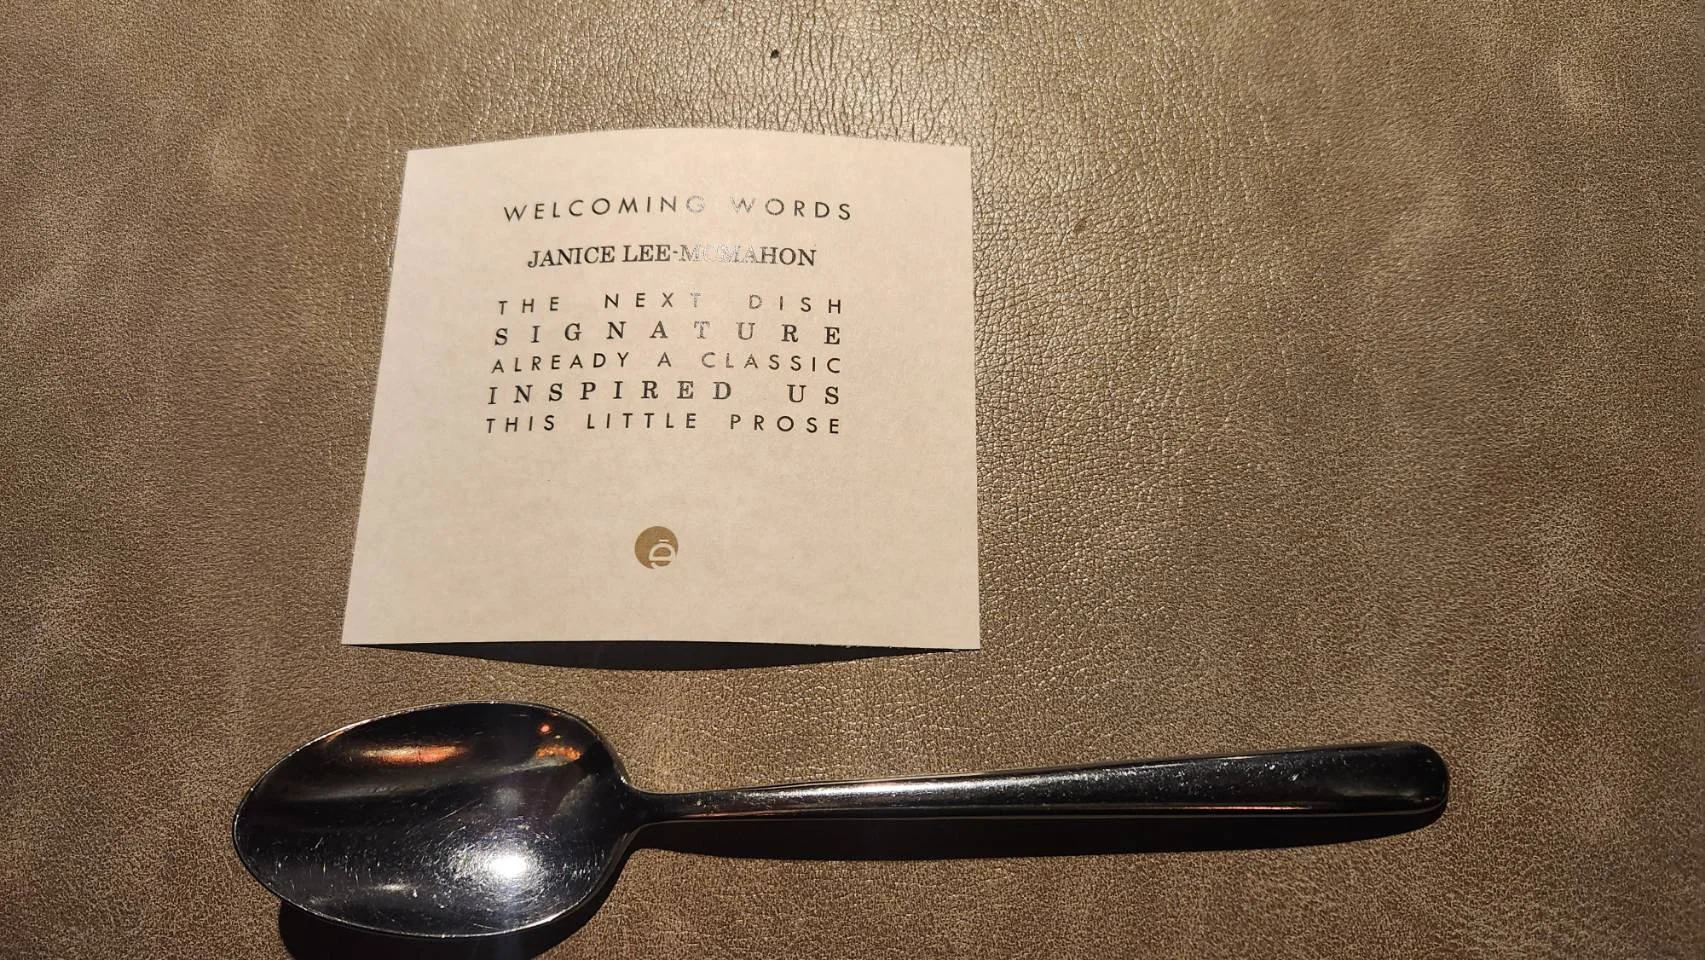 WELCOMING WORDS
JANICE LEE-MCMAHON
THE NEXT DISH
SIGNATURE
ALREADY A CLASSIC
INSPIRED US
THIS LITTLE PROSE